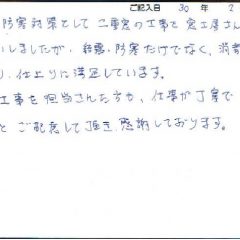 ご記入日 30 年 2
防音対策として 二重窓の工事を 窓工房さん
いしましたが、結露・防寒だけでなく、消
り、仕上りに満足しています。
工事を担当された方も、仕事が丁寧で
と ご配慮して頂き 感謝しております。